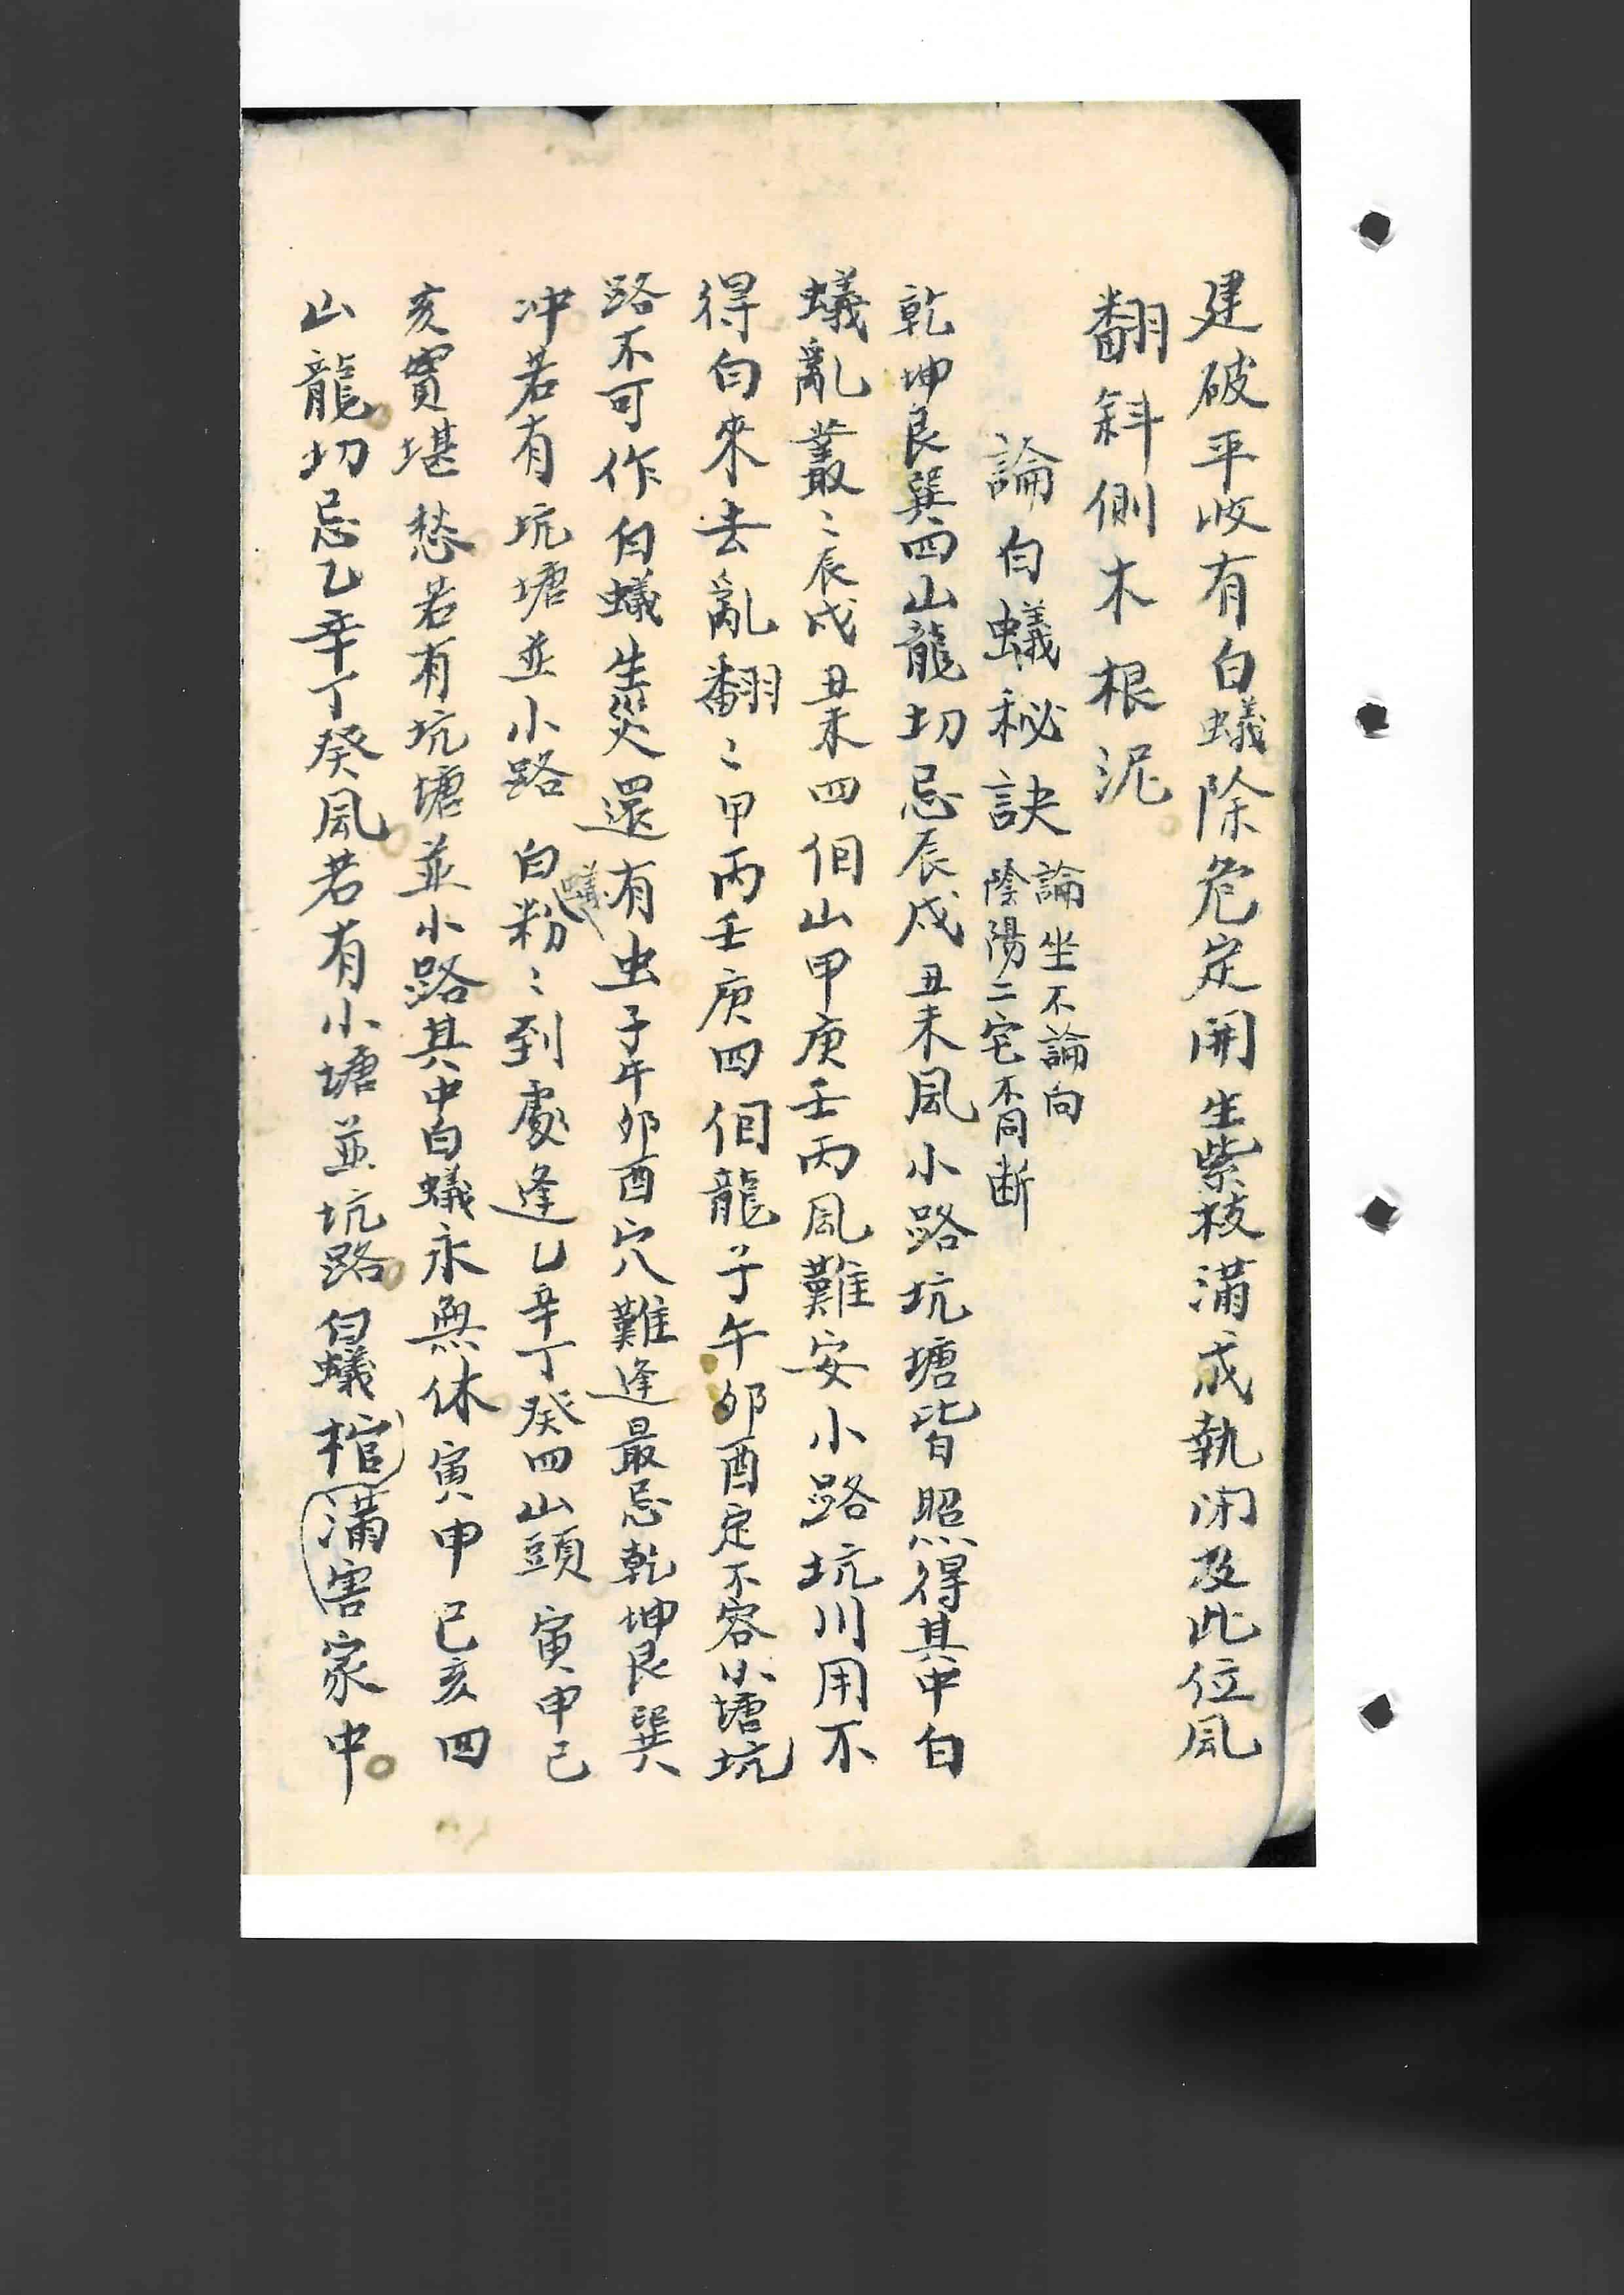 建破平收有白蟻除危定開生紫枝滿成執闭及此位風
翻斜側木根泥
論白蟻秘訣
論坐不論向
陰陽二宅不同断
乾坤艮巽四山龍切忌辰戌丑未風小路坑塘皆照得其中白
蟻亂叢〻辰戌丑未四個山甲庚壬丙風難安小路坑川用不
得白來去亂翻〻甲丙壬庚四個龍子午卯酉定不容小塘坑
路不可作白蟻生災還有虫子午卯酉穴難逢最忌乾坤艮巽
冲若有坑塘並小路白蟻粉〻到處逢乙辛丁癸四山頭寅申己
亥實堪愁若有坑塘並小路其中白蟻永無休寅申己亥四
山龍切忌乙辛丁癸風若有小塘並坑路白蟻棺滿害家中